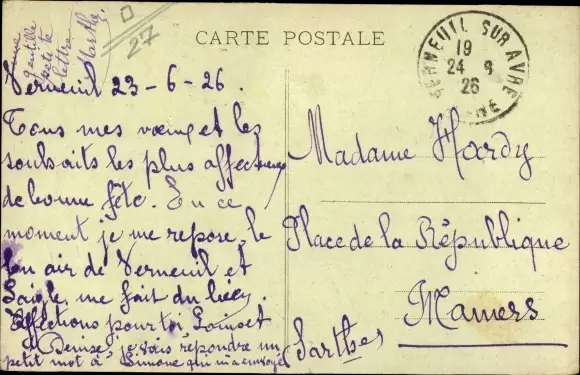 CARTE POSTALE
VERNEUIL SUR AVRE
19
24 6
26
EURE
27
Verneuil 23-6-26.
Tous mes vœux et les
souhaits les plus affectueux
de bonne fête. En ce
moment je me repose, le
bon air de Verneuil et
Laigle me fait du bien.
Affections pour toi,
Denise, je vais répondre un
petit mot à Simone qui m'a envoyé
une
gentille
petite
lettre
Marthe
Madame Hardy
Place de la République
Mamers
(Sarthe)